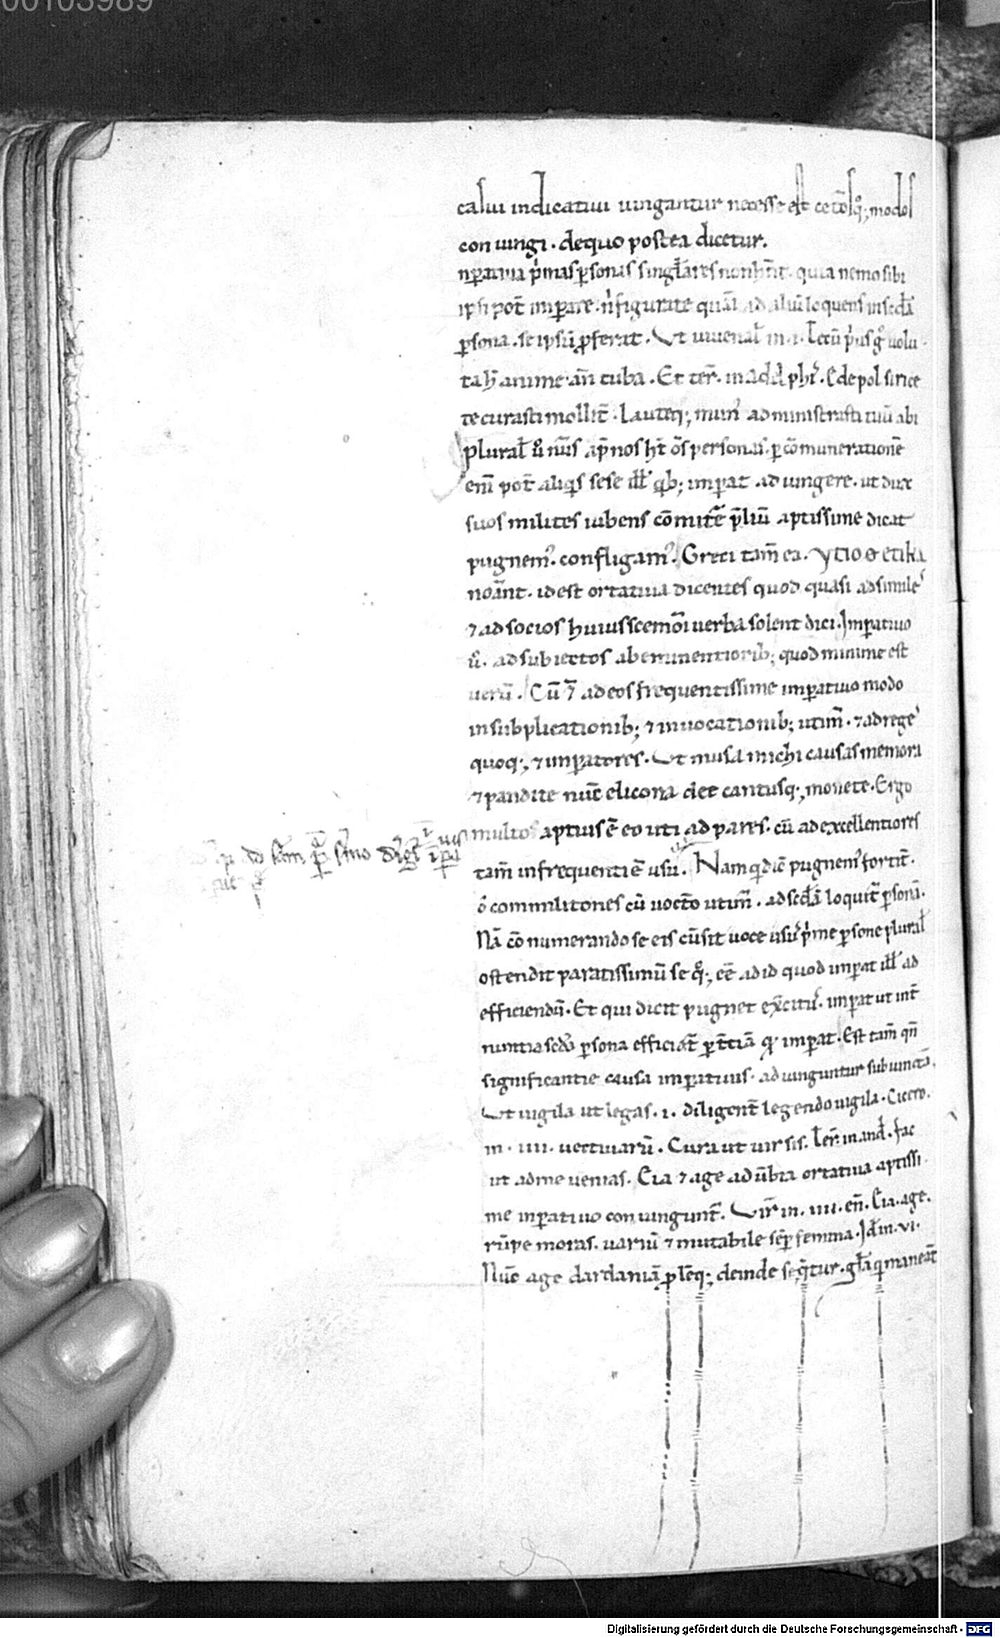 00103989
casui indicatiui iungantur necesse est ceteisq; modos
coniungi. dequo postea dicetur.
nperatiua p̄mas p̱sonas singl̄ares non hn̄t. quia nemo sibi
ipsi pot̄ imp̱are. n̓ figurate quasi ad aliū loquens in secd̄a
p̱sona. se ipsū p̱ferat. Ut iuuenal̄ in .i. Lectū p̓us g̊ uolu
ta h̄ anime an̄ tuba. Et ter̄. in adelphis. Edepol sirice
te curasti mollit̄. Lauteq; munus administrasti tuū abi
plural̄ ů nūs ap̄ nos hn̄t om̄s personas. p̱ cōmunerationē
enī pot̄ aliq̓s sese ill̄ qb; imp̱at adiungere. ut dux
suos milites iubens cōmitt̄e p̄liū aptissime dicat
pugnem̓. confligam̓. Greci tam̄ ea. ytio & etika
noīant. id est ortatiua dicentes quod quasi ad similes
⁊ ad socios huiuscemōi uerba solent dici. Imp̱atiuo
ů. ad subiectos ab eminentiorib; quod minime est
uerū. Cū ⁊ ad eos frequentissime imp̱atiuo modo
in subplicationib; ⁊ inuocationib; utim̄. ⁊ ad reges
quoq; ⁊ imp̱atores. Ut musa michi causas memora
⁊ pandite nūc elicona dee cantusq; mouete. Ergo
multo aptius ē eo uti ad pares. cū ad excellentiores
tam̄ in frequenti ē usu. Nam q̓ dic̄ pugnem̓ fortit̄.
ó commilitones cū uocto utim̄. ad secd̄ā loquit̄ p̱sonā.
Nā cōnumerando se eis cū sit uoce usus p̓me p̱sone plural̄
ostendit paratissimū se q̊q; eē ad id quod imp̱at ill̄ ad
efficiendū. Et qui dicit pugnet exc̄itus. imp̱at ut int̄
nuntia secd̄o p̱sona efficiat̄ p̱ t̄tiā q̊ imp̱at. Est tam̄ qn̄
significantie causa imp̱atiuis. adiunguntur subiunctiua.
Ut uigila ut legas. i. diligent̄ legendo uigila. Cicero.
in .iiii. uerrinarū. Cura ut uir sis. Ter̄. in and̄. fac
ut ad me uenias. Eia ⁊ age aduerbia ortatiua aptissi
me inp̱atiuo coniungunt̄. Uir̄ in .iiii. en̄. Eia. age.
rūpe moras. uariū ⁊ mutabile semp̱ femina. Id̄ in .vi.
Nūc age dardaniā p̱leq; deinde seq̄tur. gl̄a q̓ maneat
Digitalisierung gefördert durch die Deutsche Forschungsgemeinschaft - DFG